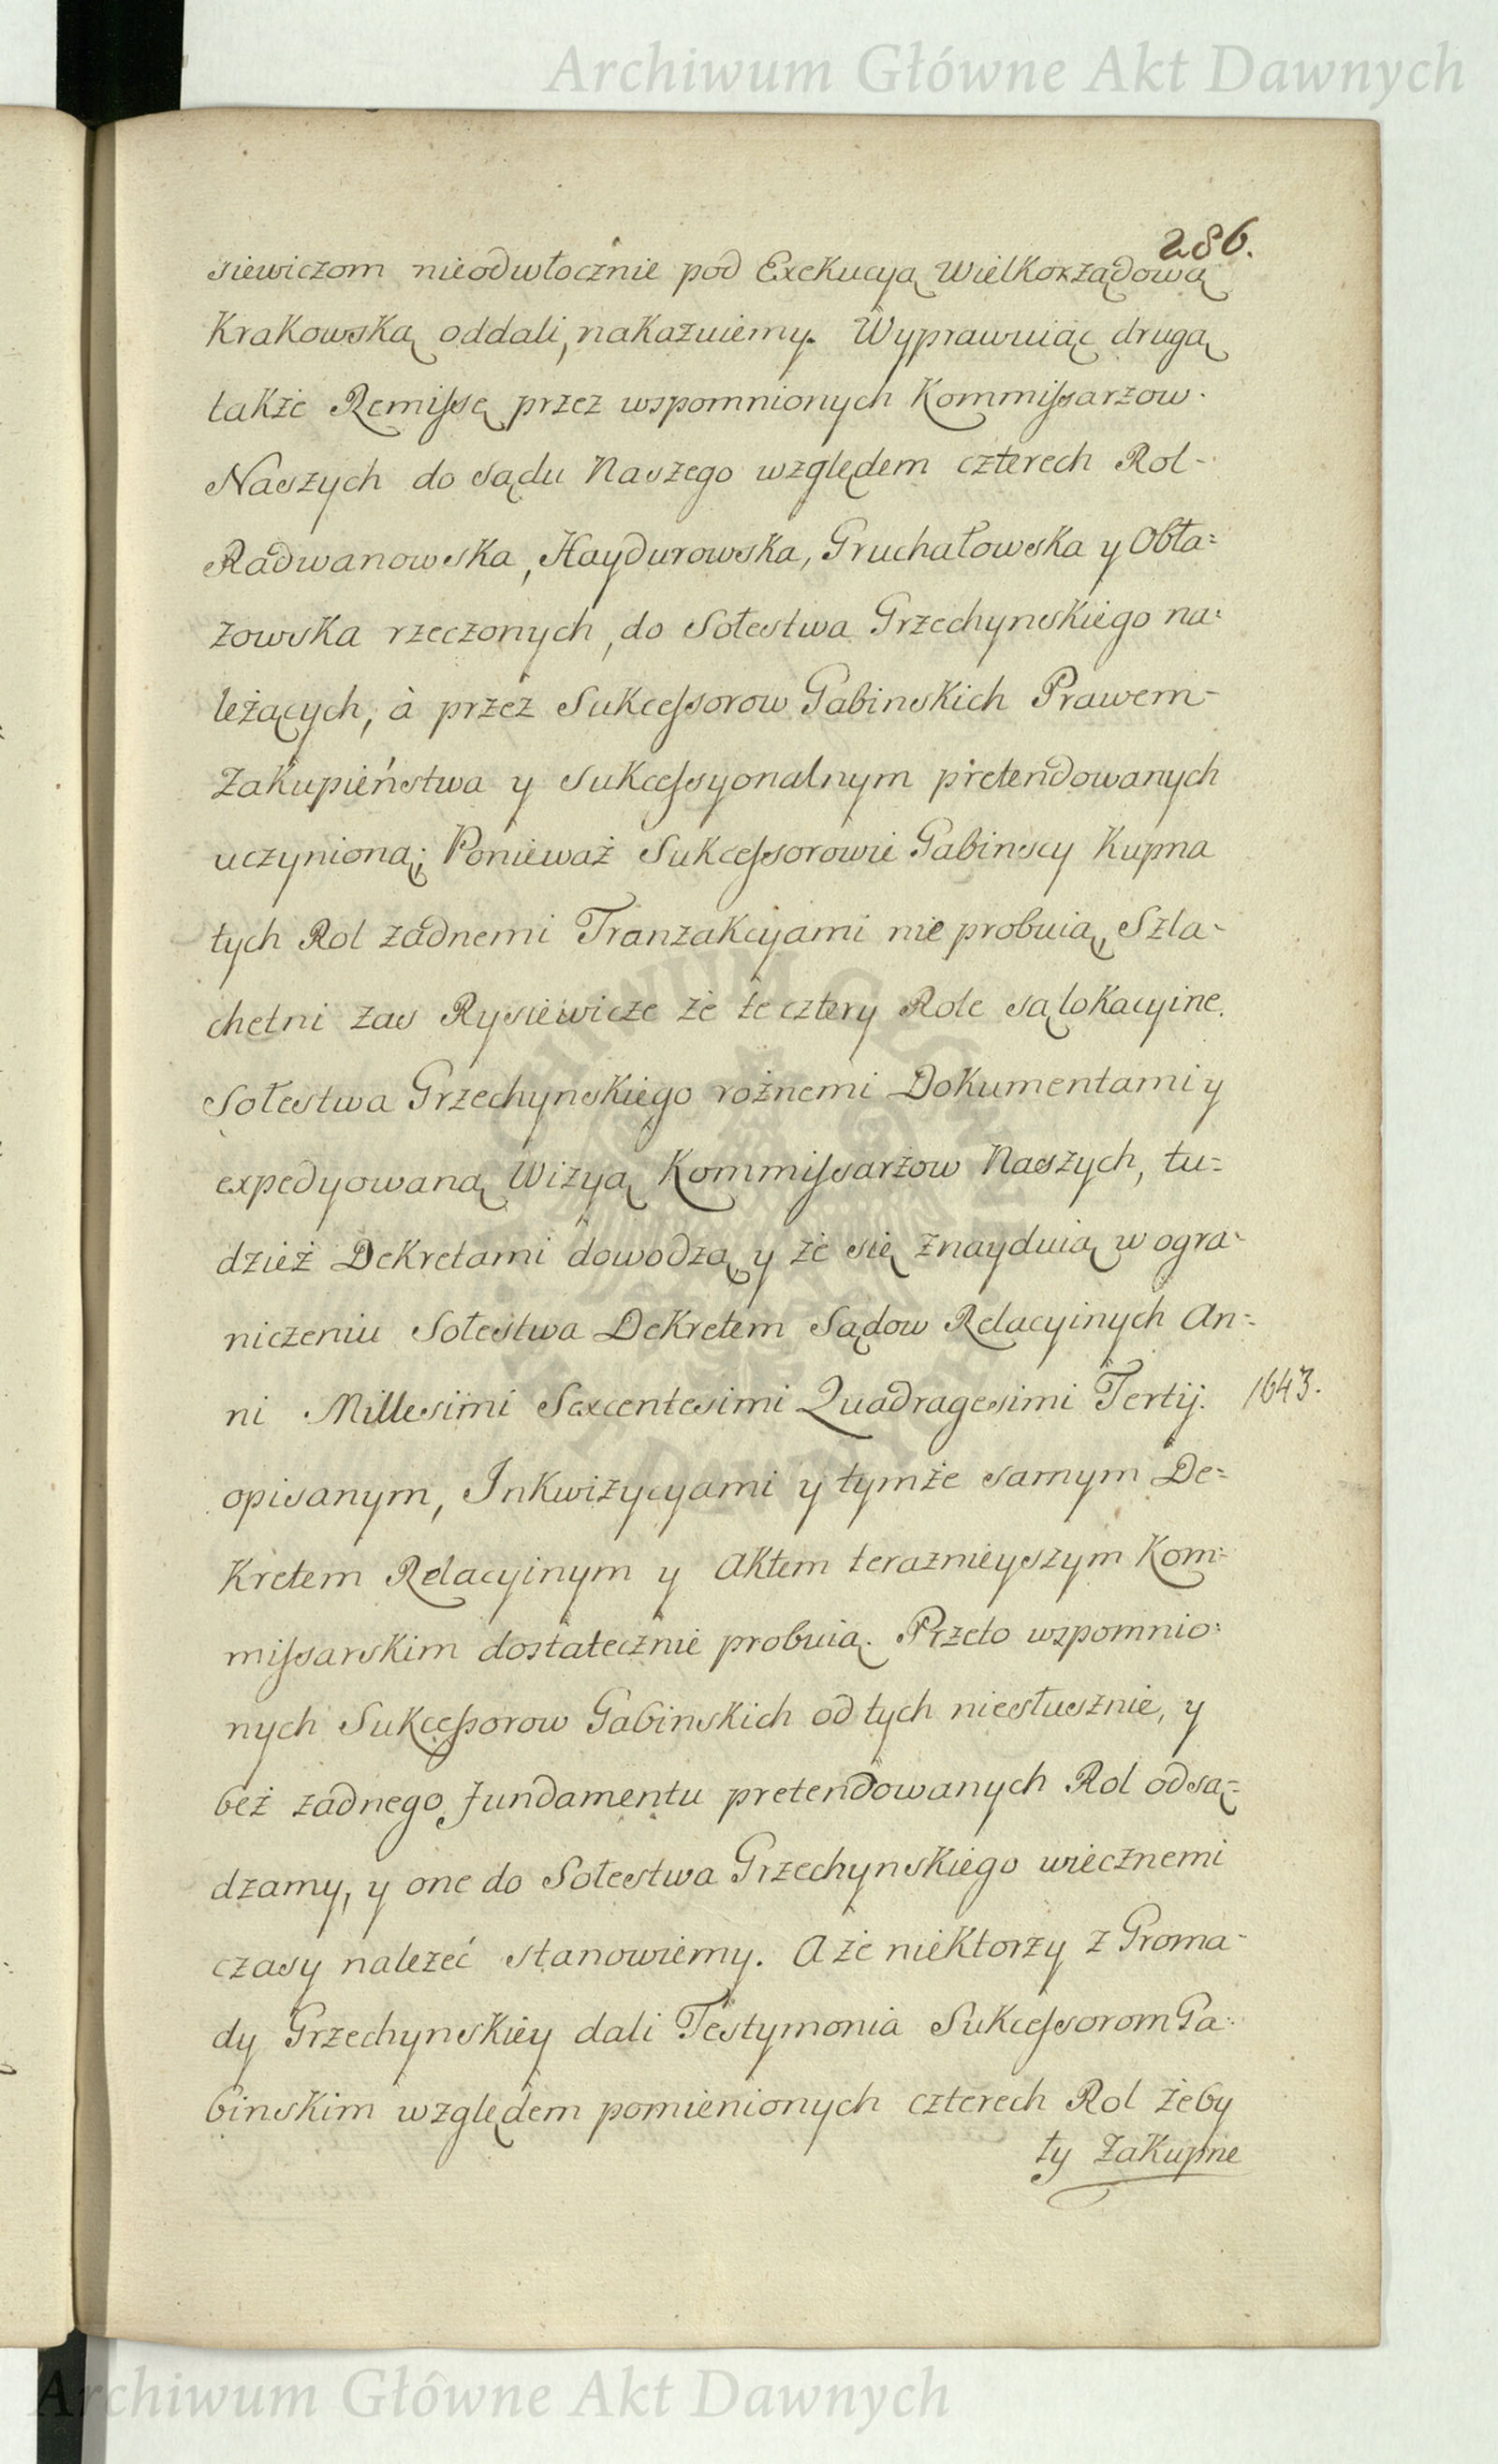 Archiwum Główne Akt Dawnych
286.
siewiczom nieodwłocznie pod Exekucyą Wielkorządową
Krakowską oddali, nakazuiemy. Wyprawuiąc drugą
także Remissę przez wspomnionych Kommissarzow
Naszych do Sądu Naszego względem czterech Rol
Radwanowska, Haydurowska, Gruchałowska y Obła=
zowska rzeczonych, do Sołestwa Grzechynskiego na=
leżących, à przez Sukcessorow Gabinskich Prawem
Zakupieństwa y Sukcessyonalnym pretendowanych
uczynioną; Ponieważ Sukcessorowie Gabinscy Kupna
tych Rol zadnemi Tranzakcyami nie probuią, Szla-
chetni zas Rysiewicze że te cztery Role są lokacyine
Sołestwa Grzechynskiego rożnemi Dokumentami y
expedyowaną Wizyą Kommissarzow Naszych, tu=
dzież Dekretami dowodzą, y że się znayduią w ogra-
niczeniu Sołestwa Dekretem Sądow Relacyinych An=
ni Millesimi Sexcentesimi Quadragesimi Tertij. 1643.
opisanym, Inkwizycyami y tymże samym De=
kretem Relacyinym y Aktem teraznieyszym Kom=
missarskim dostatecznie probuią. Przeto wspomnio=
nych Sukcessorow Gabinskich od tych niesłusznie, y
bez zadnego fundamentu pretendowanych Rol odsą=
dzamy, y one do Sołestwa Grzechynskiego wiecznemi
czasy należeć stanowiemy. A że niektorzy z Groma-
dy Grzechynskiey dali Testymonia Sukcessorom Ga=
binskim względem pomienionych czterech Rol żeby
ty Zakupne
Archiwum Główne Akt Dawnych